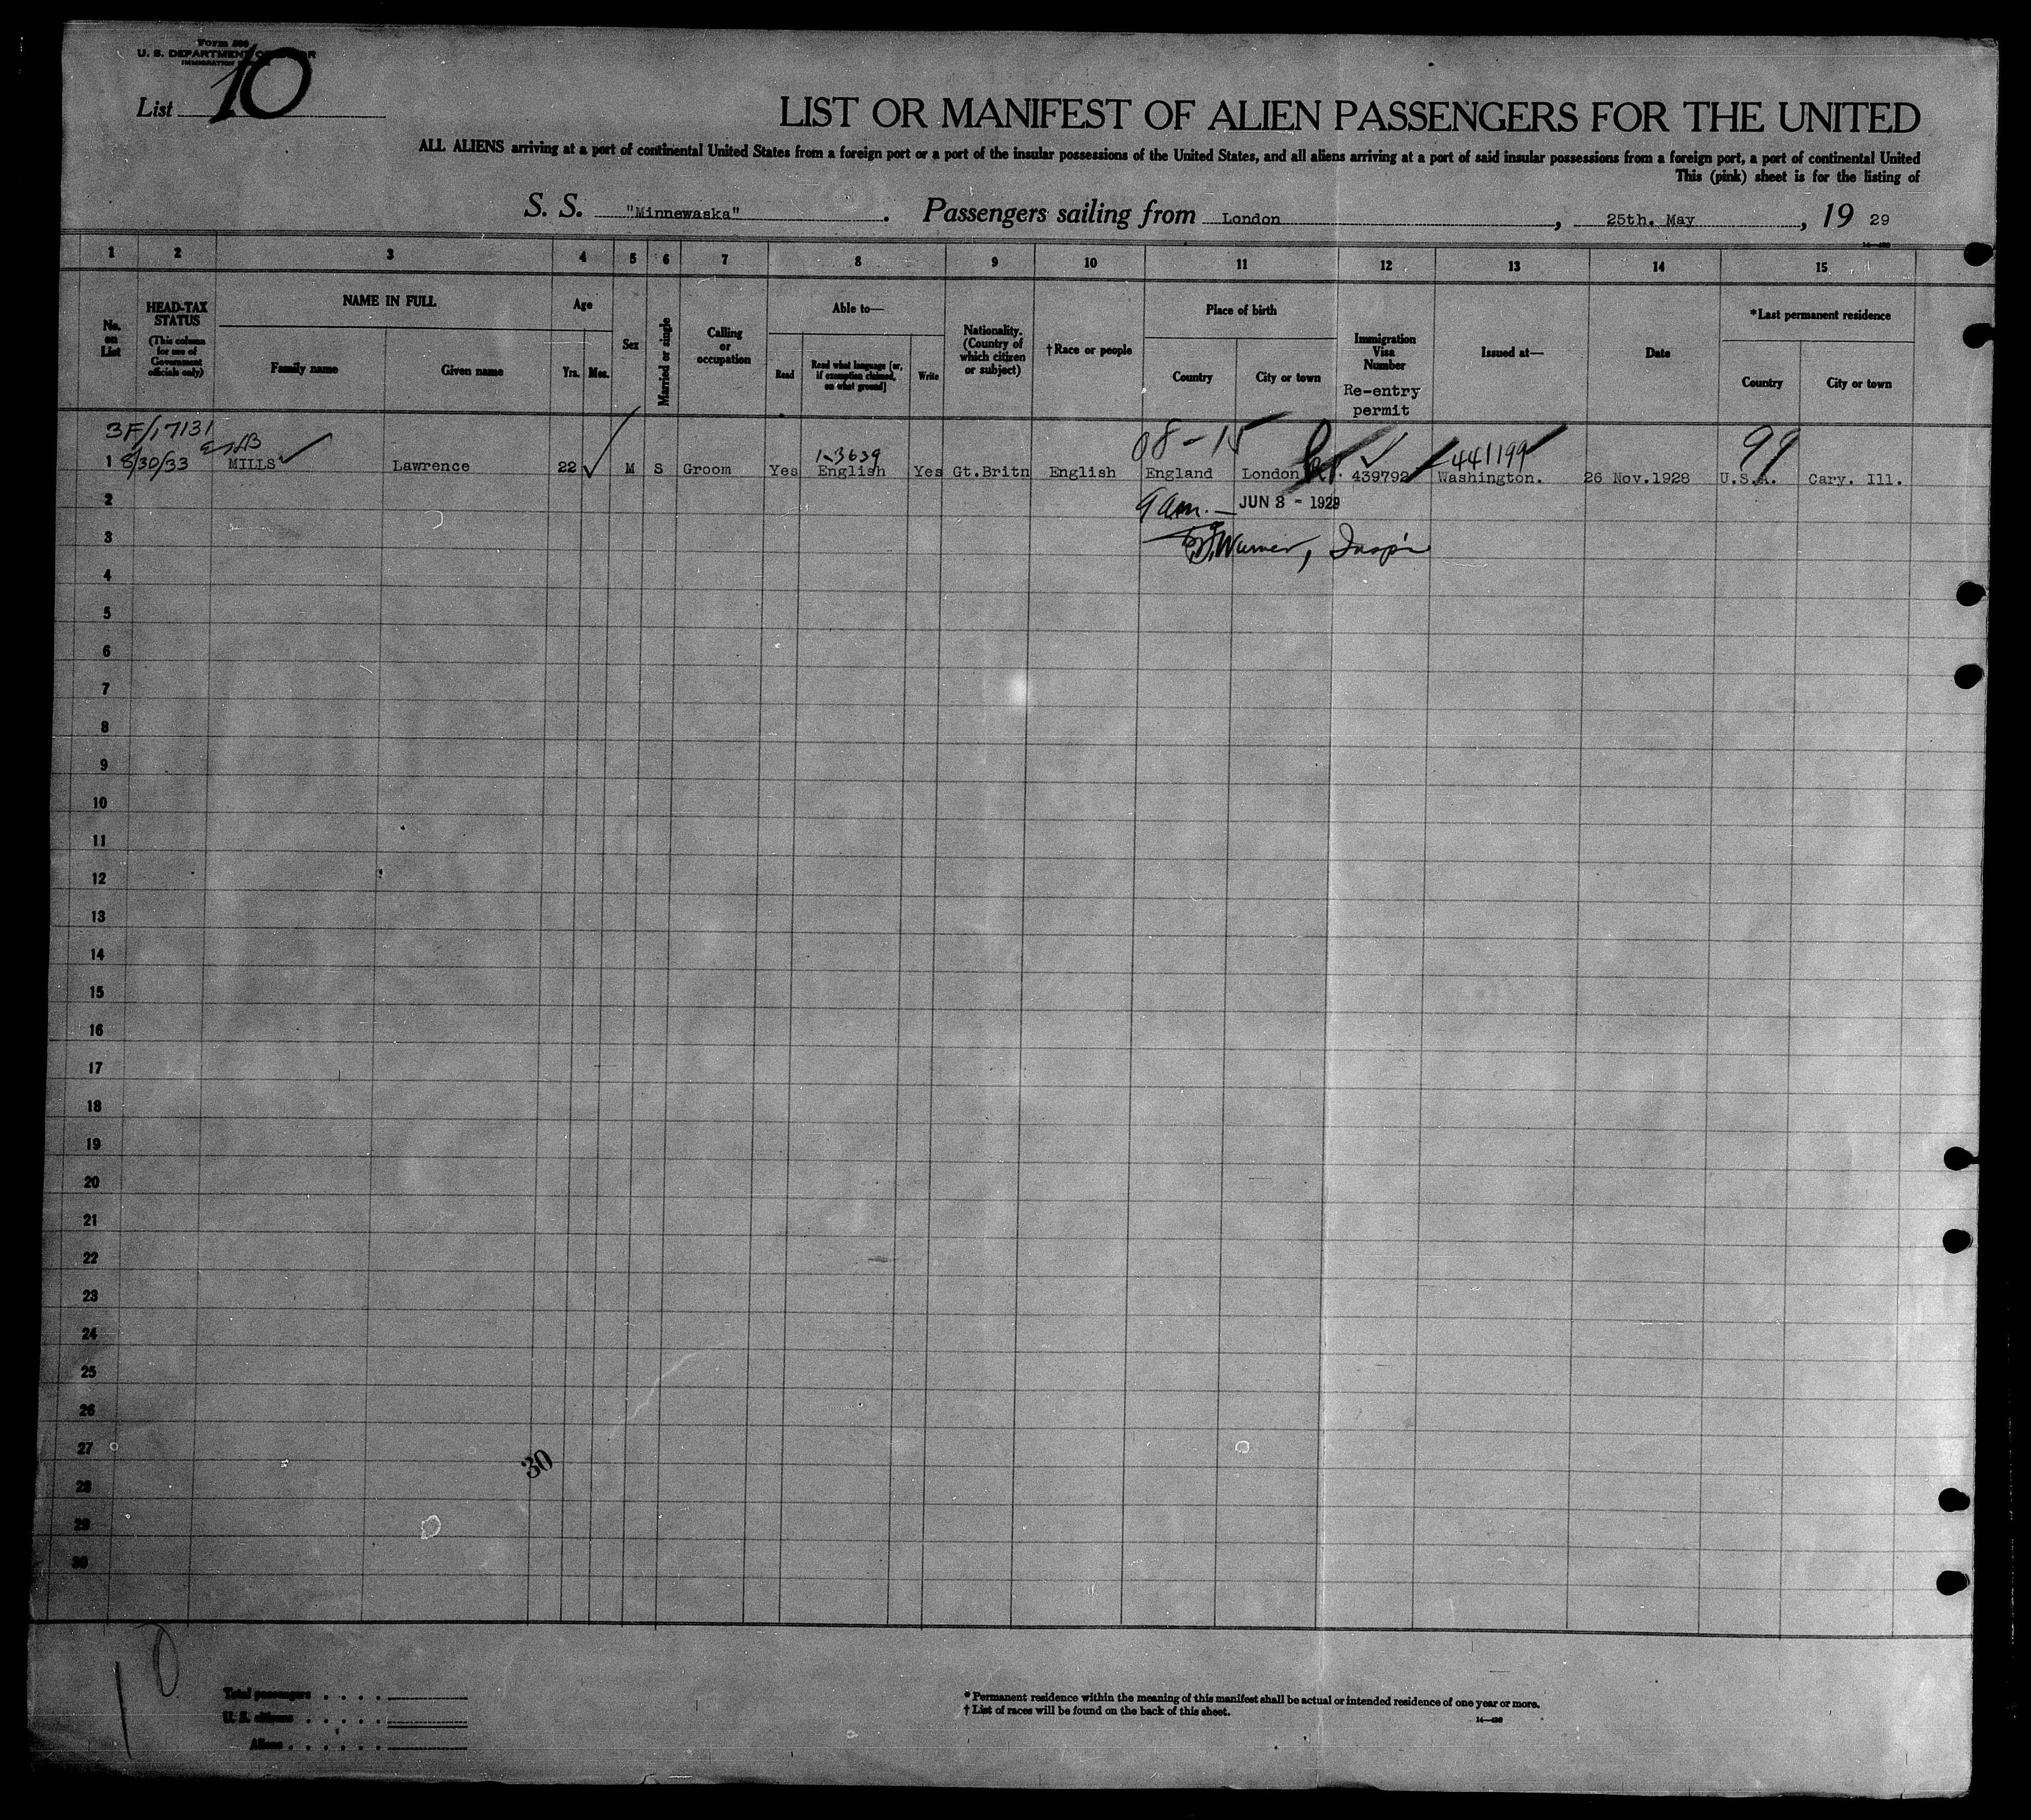 Form 500
U. S. DEPARTMENT OF LABOR
IMMIGRATION
List 10
LIST OR MANIFEST OF ALIEN PASSENGERS FOR THE UNITED
ALL ALIENS arriving at a port of continental United States from a foreign port or a port of the insular possessions of the United States, and all aliens arriving at a port of said insular possessions from a foreign port, a port of continental United
This (pink) sheet is for the listing of
S. S. "Minnewaska". Passengers sailing from London, 25th. May, 19 29
1 2 3 4 5 6 7 8 9 10 11 12 13 14 15
No. on List
HEAD-TAX STATUS
(This column for use of Government officials only)
NAME IN FULL
Family name
Given name
Age
Yrs. Mos.
Sex
Married or single
Calling or occupation
Able to—
Read
Read what language [or, if exemption claimed, on what ground]
Write
Nationality. (Country of which citizen or subject)
†Race or people
Place of birth
Country
City or town
Immigration Visa Number
Re-entry permit
Issued at—
Date
*Last permanent residence
Country
City or town
3F/17131
8/30/33
1-3639
08-15
441199
99
1 MILLS Lawrence 22 M S Groom Yes English Yes Gt.Britn English England London 439792 Washington. 26 Nov.1928 U.S.A. Cary. Ill.
2
9 am. — JUN 3 - 1929
3
Warner, Insp'r
4
5
6
7
8
9
10
11
12
13
14
15
16
17
18
19
20
21
22
23
24
25
26
27
30
28
29
30
10
Total passengers
U. S. citizens
Aliens
* Permanent residence within the meaning of this manifest shall be actual or intended residence of one year or more.
† List of races will be found on the back of this sheet.